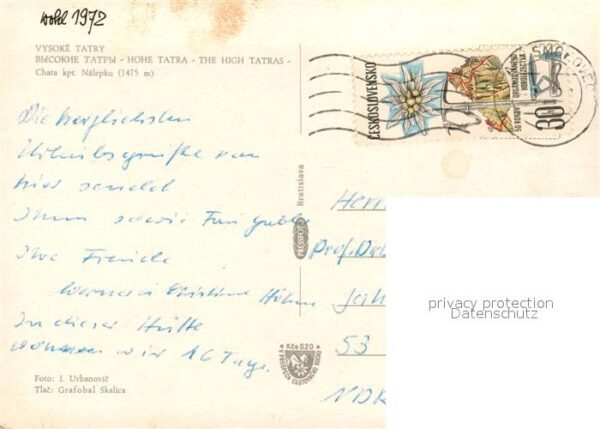 wohl 1972
VYSOKÉ TATRY
ВЫСОКИЕ ТАТРЫ - HOHE TATRA - THE HIGH TATRAS -
Chata kpt. Nálepku (1475 m)
Die herzlichsten
Höhenlagengrüße von
hier sendet
Ihnen sowie Frau
Ihre Freunde
Werner u. Christine
In dieser Hütte
wohnen wir 16 Tage.
Foto: I. Urbanovič
Tlač: Grafobal Skalica
Bratislava
PRESSFOTO
Kčs 0,20
ČESKOSLOVENSKO
50 ROKOV ORGANIZOVANÉHO HOROLEZECTVA
30
SMOKOVEC
Herrn
Prof. Dr.
53
privacy protection
Datenschutz